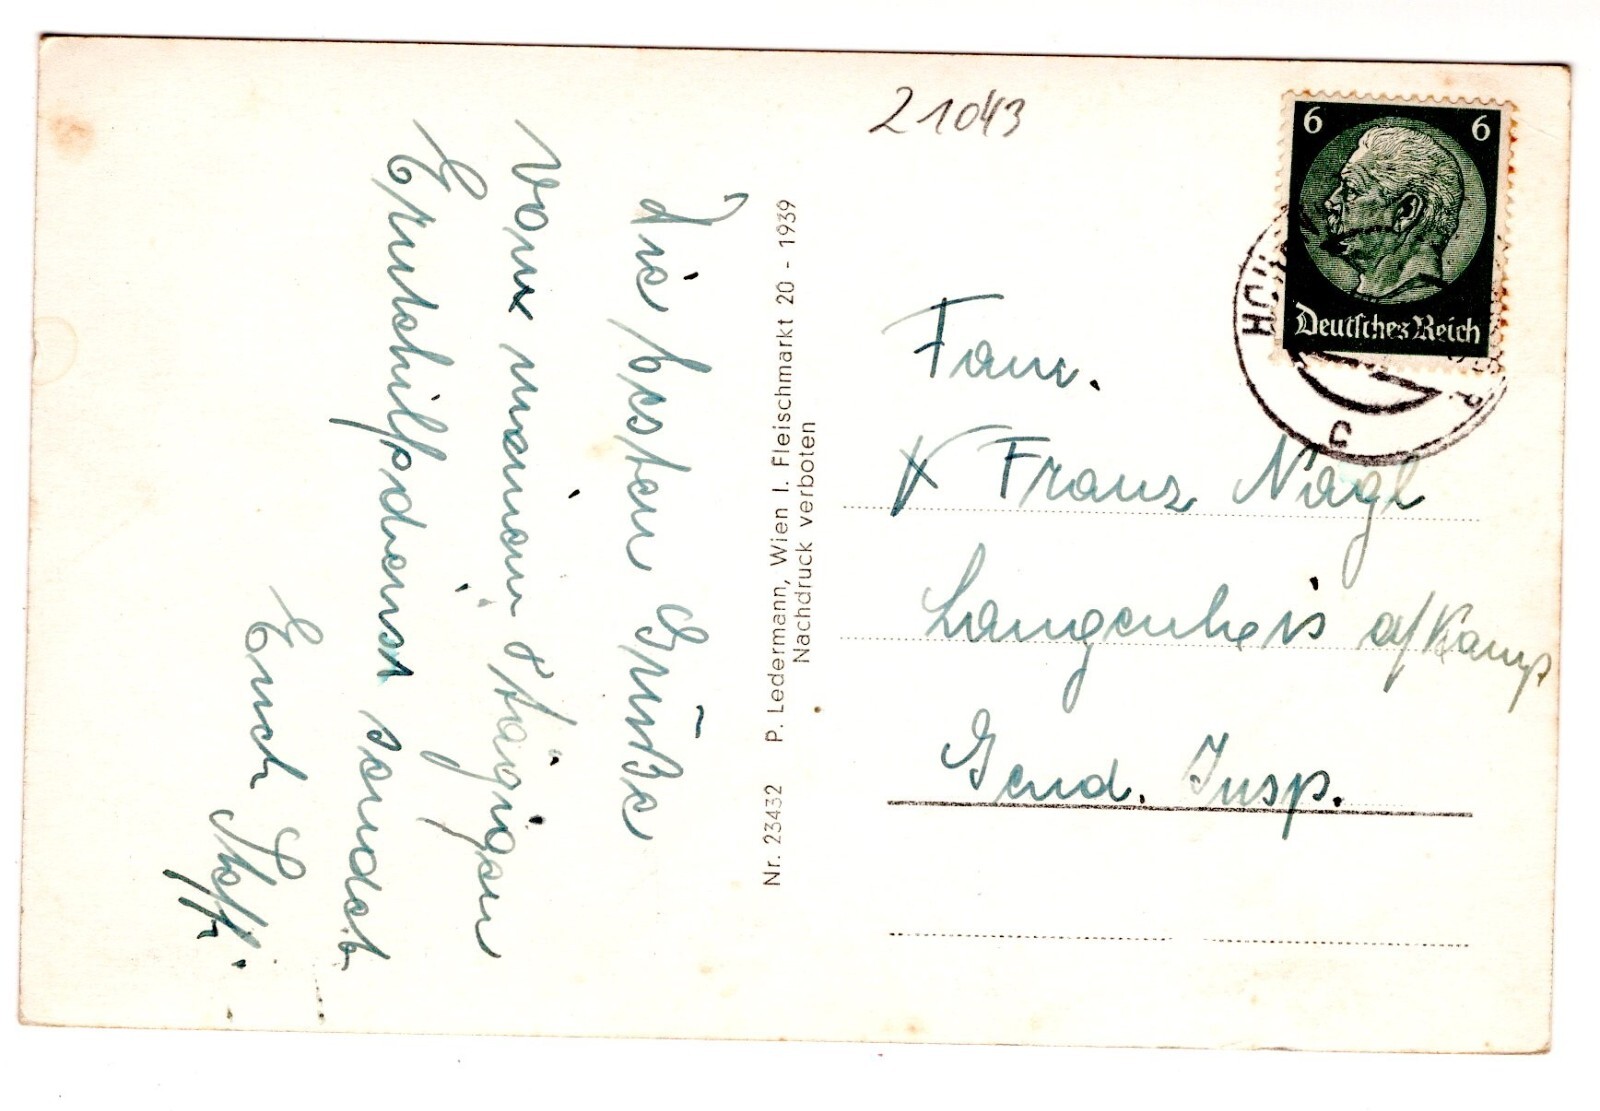 Die besten Grüße
vom meinem 8 tägigen
Erntehilfsdienst sendet
Euch Steffi.
Nr. 23432 P. Ledermann, Wien I. Fleischmarkt 20 - 1939
Nachdruck verboten
21043
6 6
Deutsches Reich
C
Fam.
Franz Nagl
Langenlois a/Kamp
Gend. Insp.